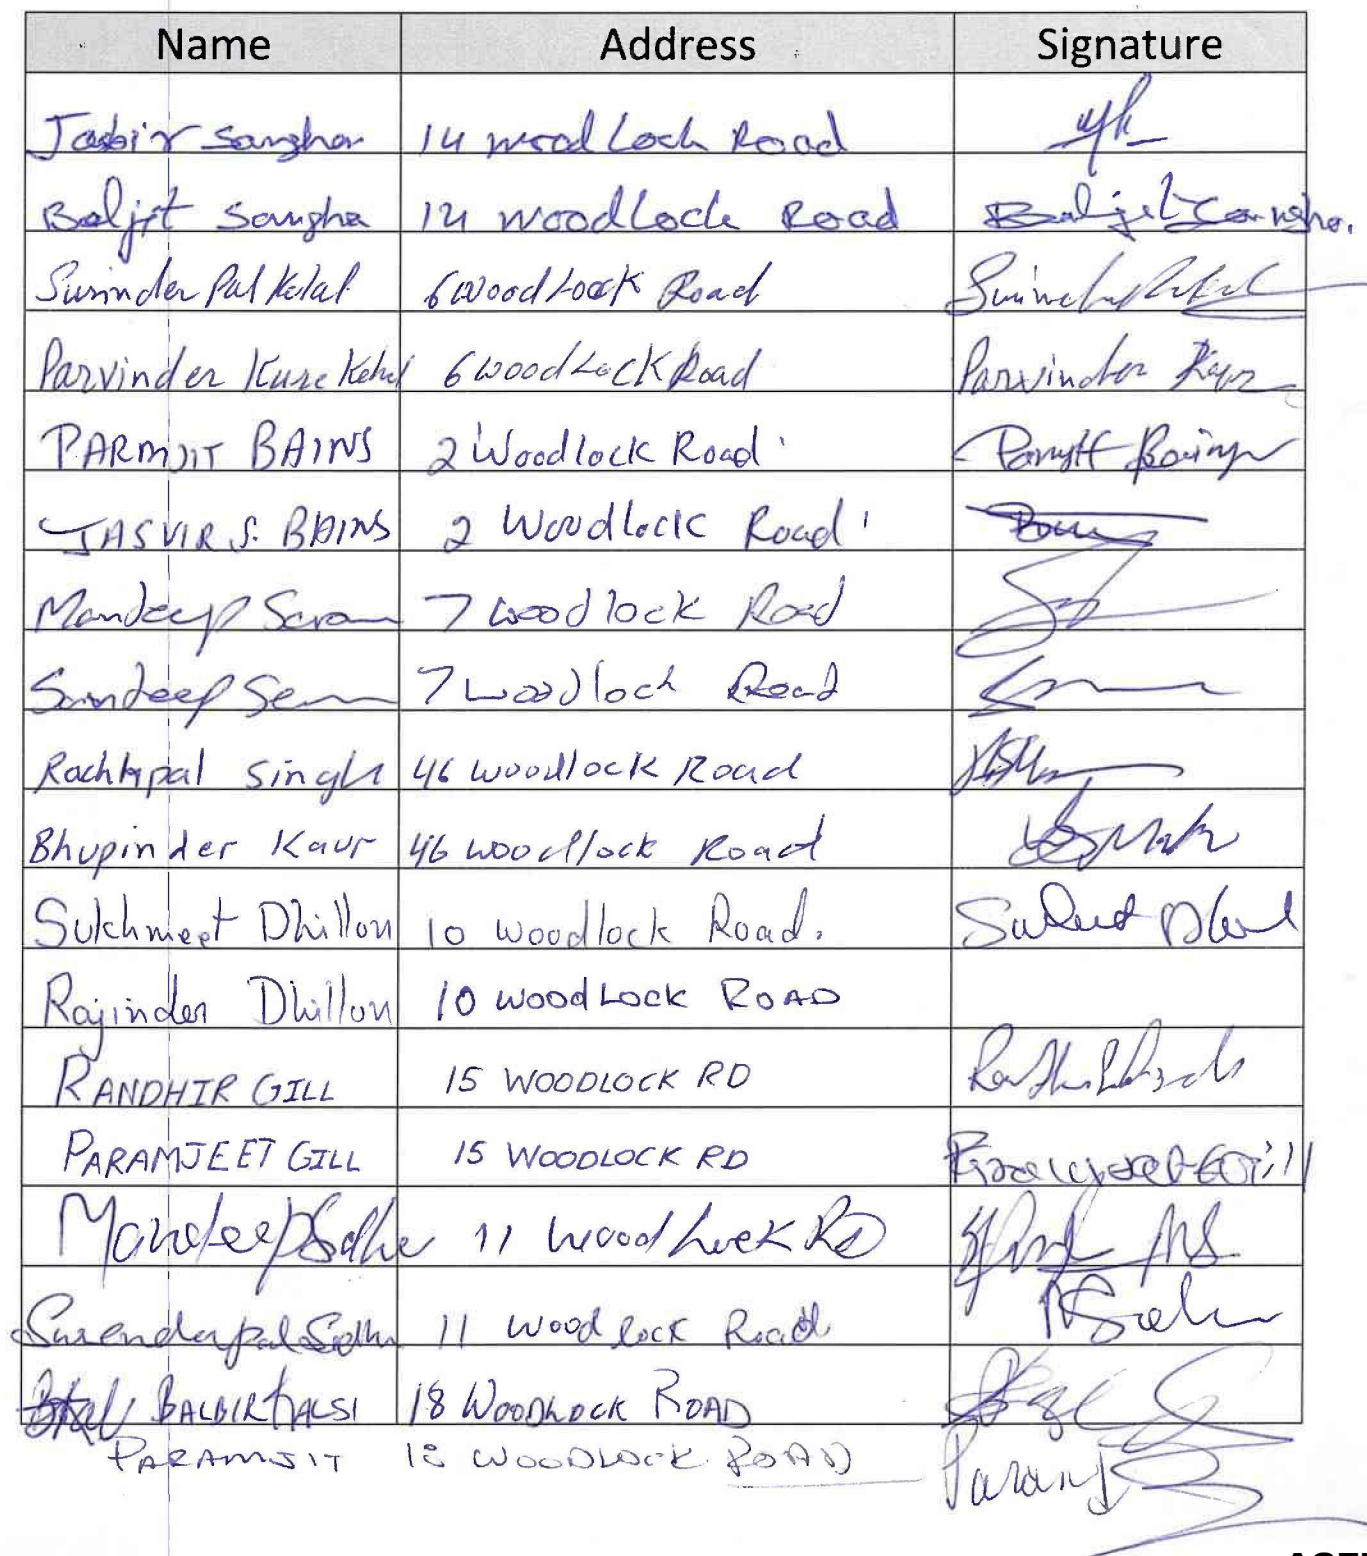 Name Address Signature
Jasbir Sangha 14 wood Lock Road
Baljit Sangha 14 woodLock Road Baljit Sangha.
Surinder Pal Kelal 6 Wood Lock Road
Parvinder Kehal 6 Wood Lock Road Parvinder Kaur
PARMJIT BAINS 2 Woodlock Road Parmjit Bains
JASVIR S. BAINS 2 Woodlock Road
Mandeep 7 woodlock Road
7 woodlock Road
Rachhpal Singh 46 woodlock Road
Bhupinder Kaur 46 woodlock Road
Sukhmeet Dhillon 10 woodlock Road.
Rajinder Dhillon 10 WOODLOCK ROAD
RANDHIR GILL 15 WOODLOCK RD
PARAMJEET GILL 15 WOODLOCK RD
Mandeep Sidhu 11 Wood Lock RD
Surenderpal Sidhu 11 Wood lock Road
BALBIR KALSI 18 WOODLOCK ROAD
PARAMJIT 18 WOODLOCK ROAD